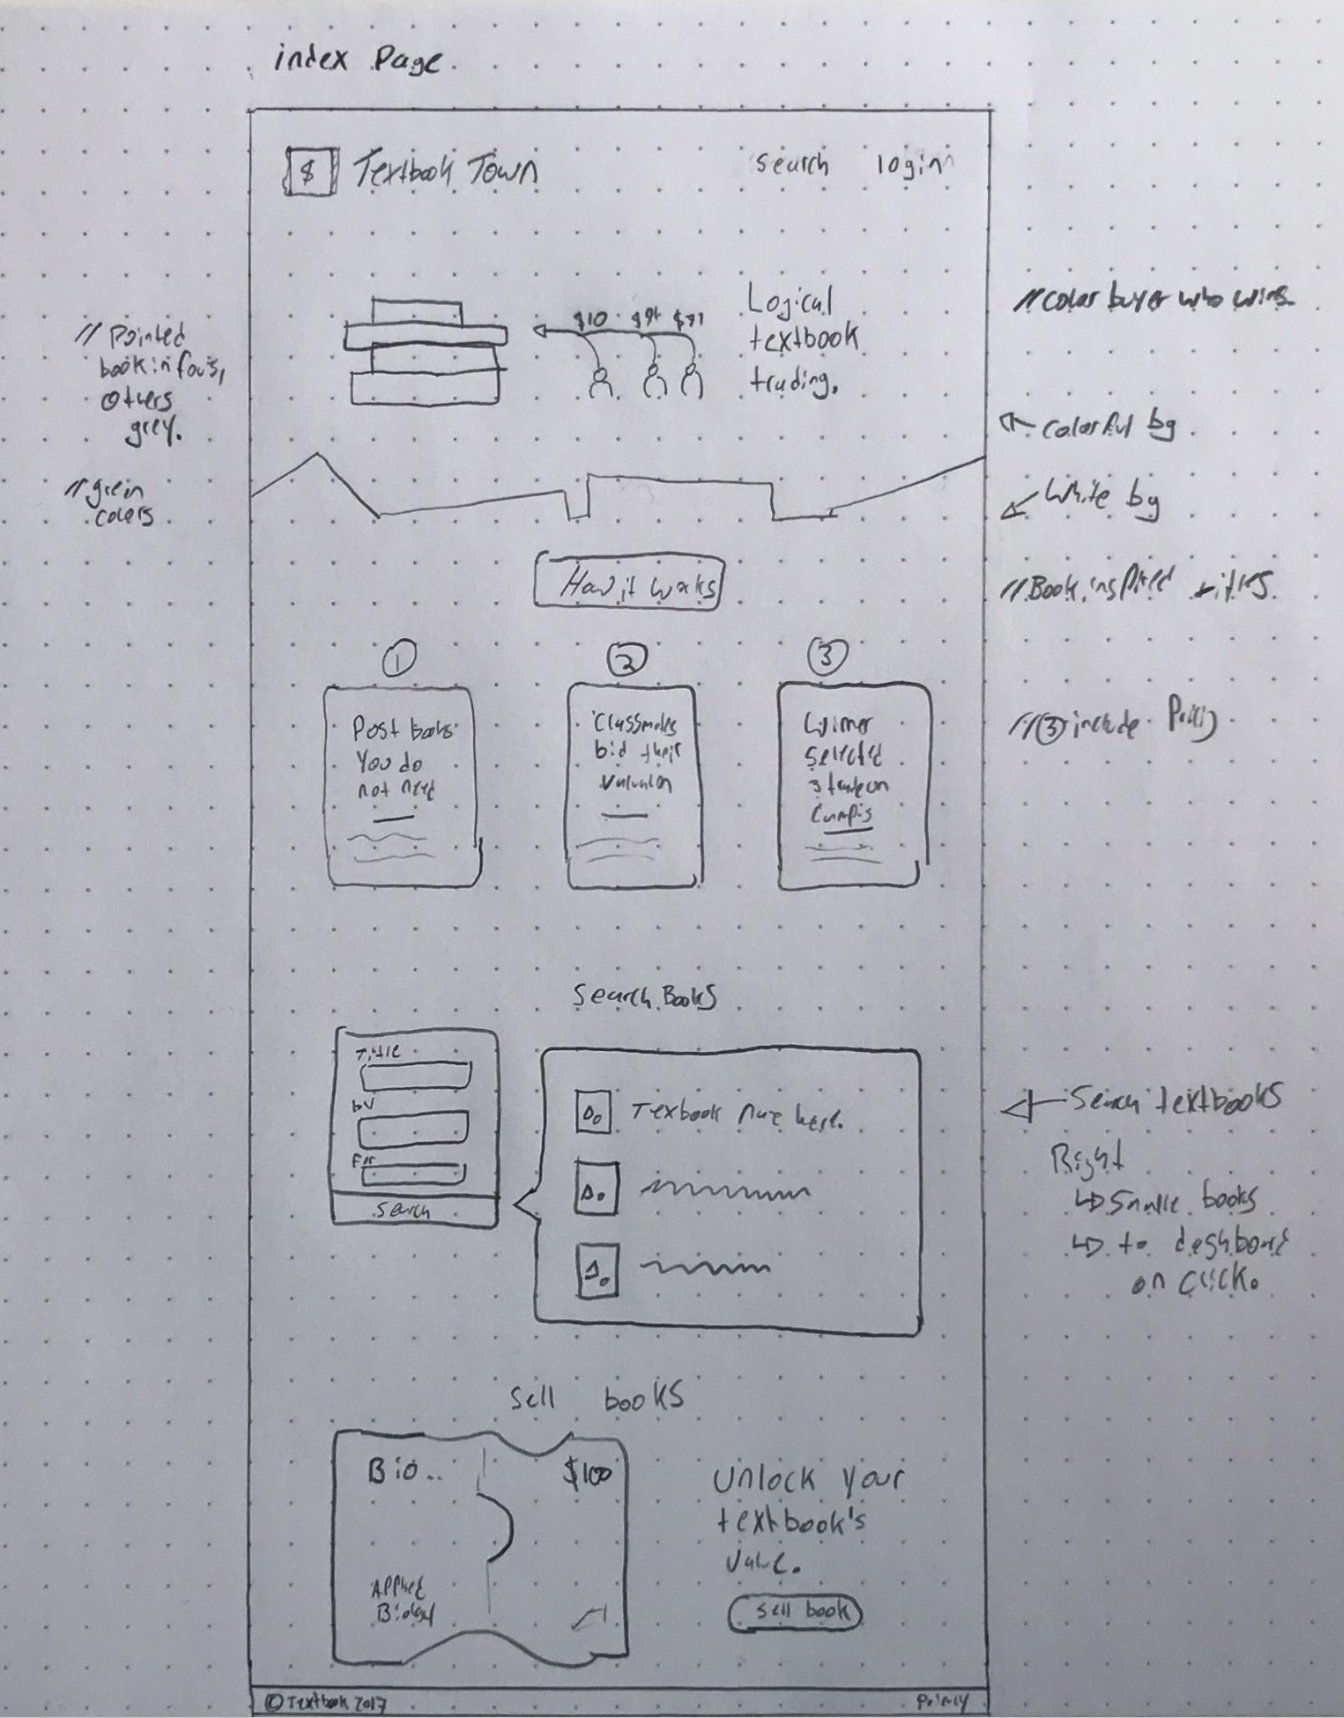 index Page
$ Textbook Town
search login
$10
Logical
textbook
trading.
// Pointed
book in focus,
Others
grey.
// green
colors
// color buyer who wins
colorful bg
White bg
How it works
// Book inspired titles
1
2
3
Post books
You do
not need
Classmates
bid their
valuation
Winner
selected
campus
// 3 include
Search Books
Title
Search
Textbook name here.
Search textbooks
Right
books
to dashboard
on click.
Sell books
Bio..
$100
Applied
Biology
Unlock your
textbook's
value.
Sell book
© Textbook 2017